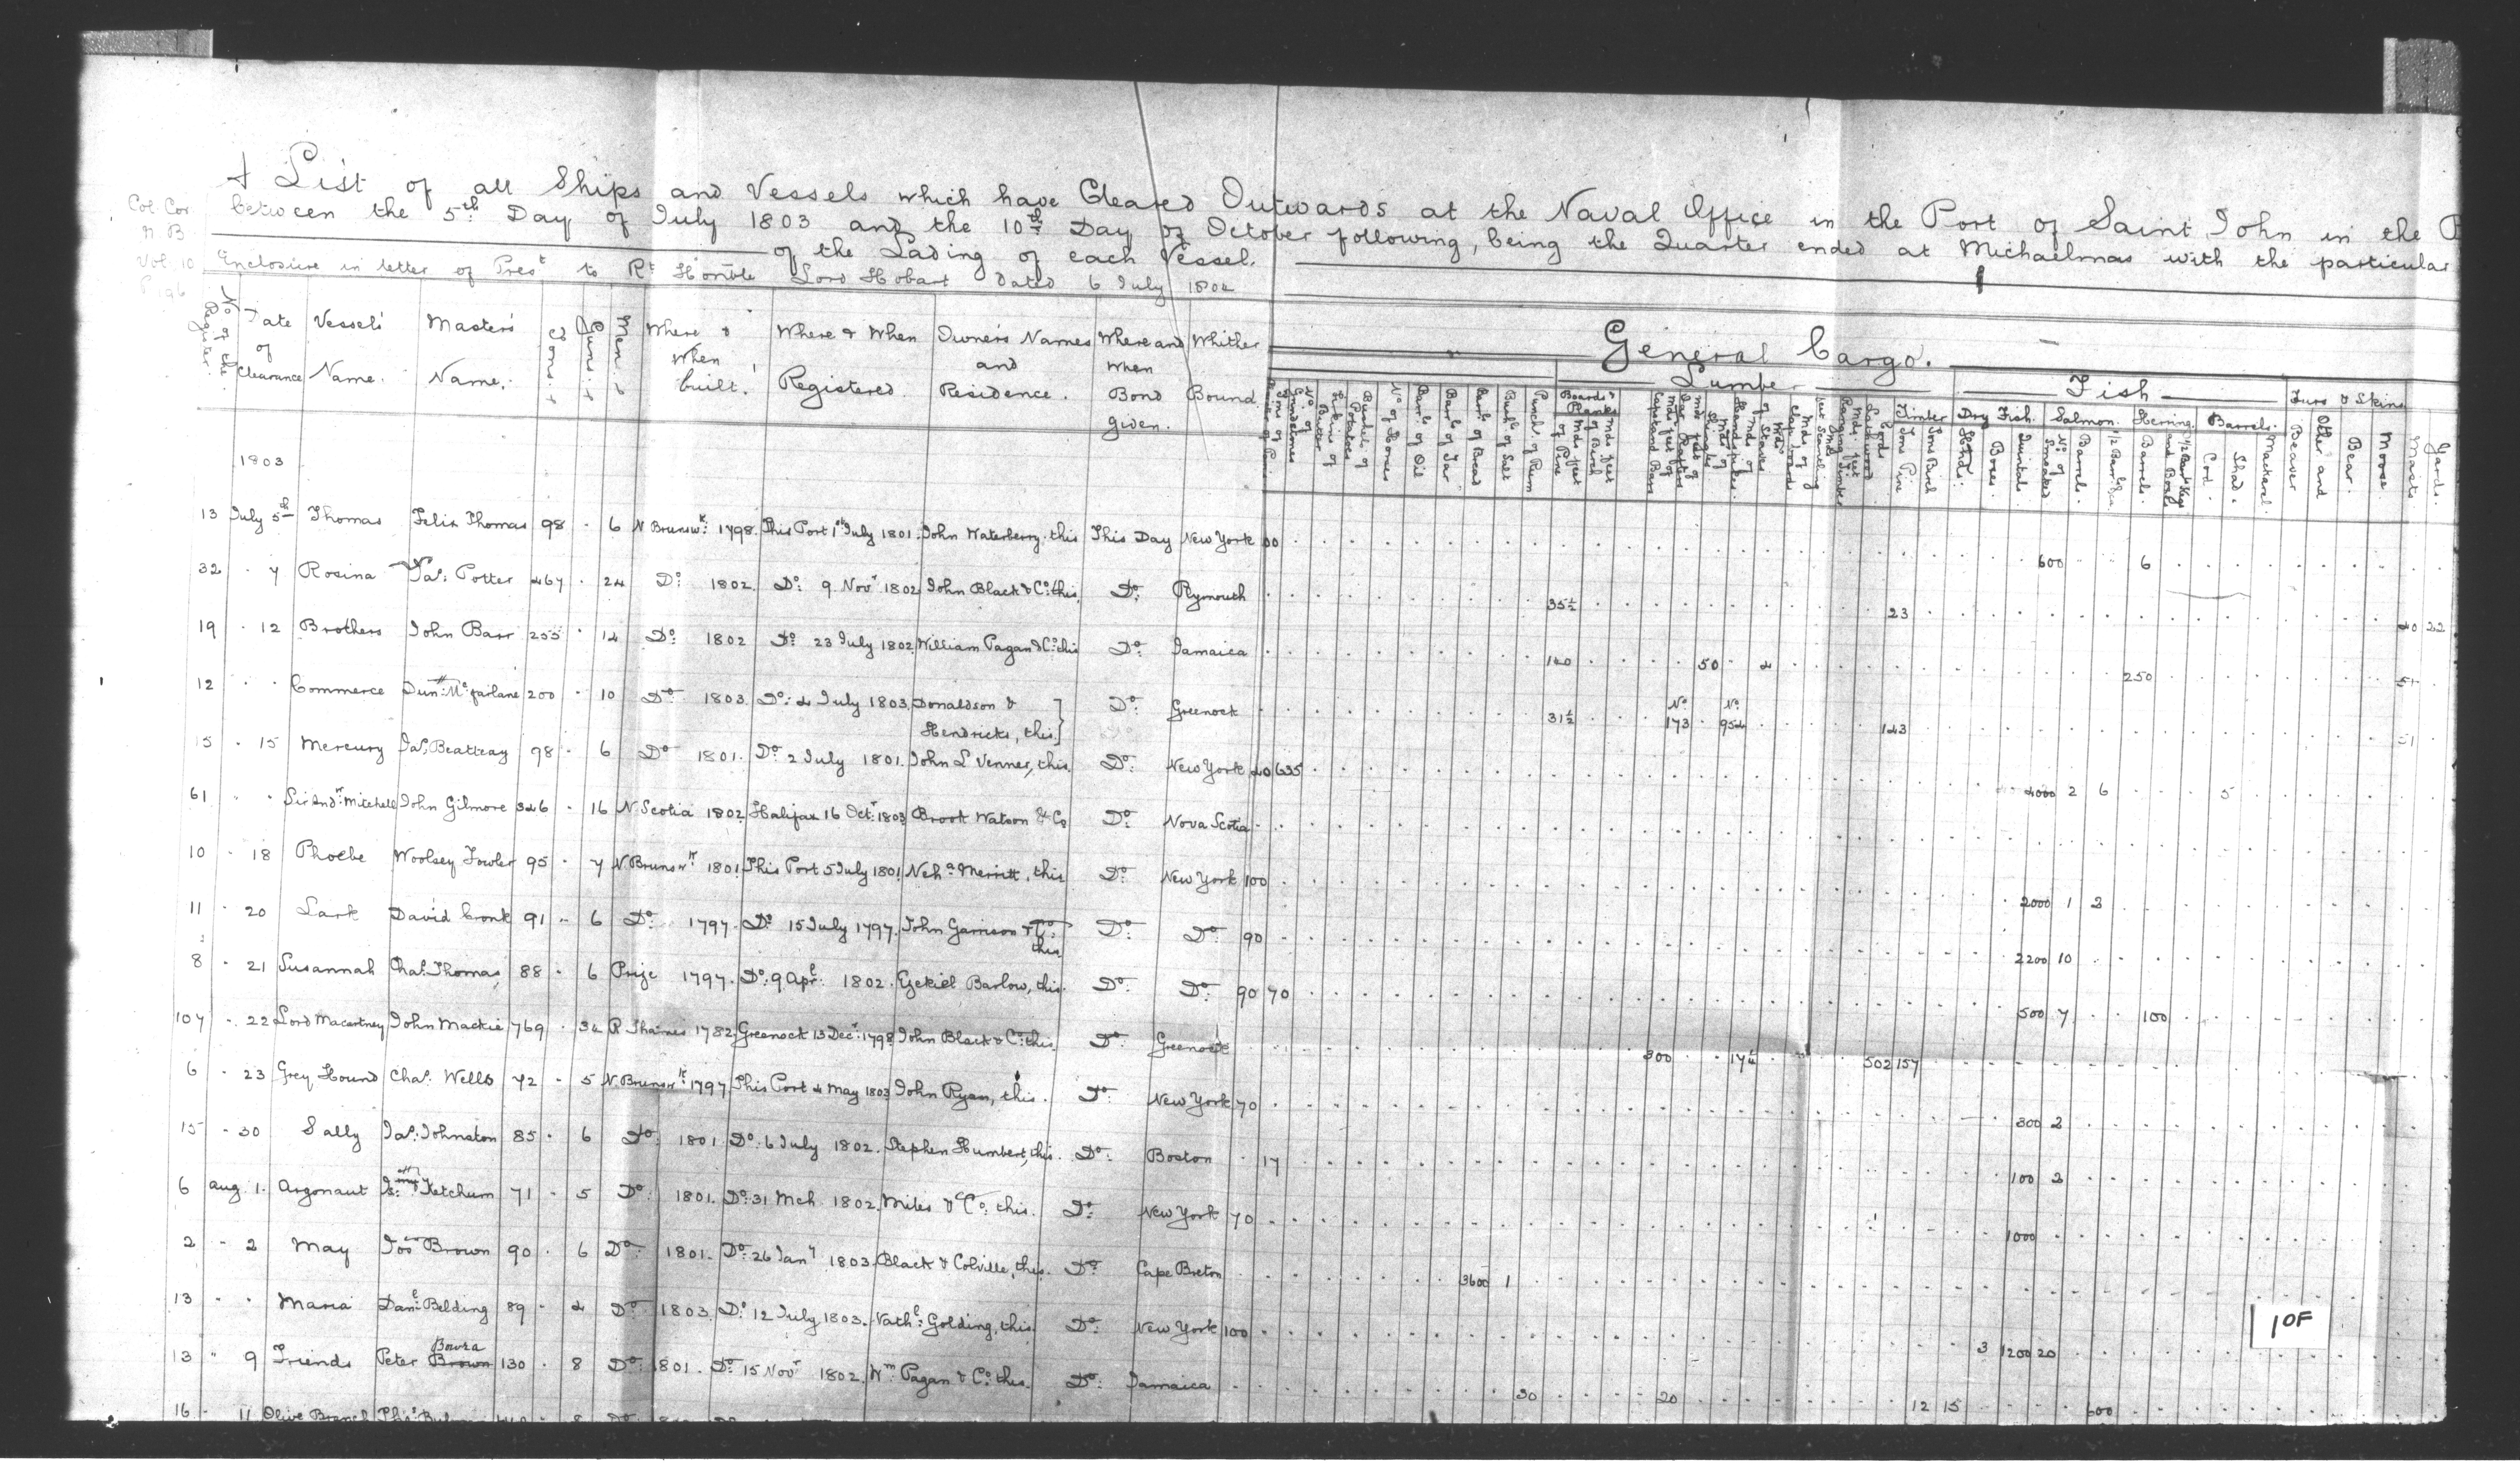 A List of all Ships and Vessels which have Cleared Outwards at the Naval Office in the Port of Saint John in the P
between the 5th Day of July 1803 and the 10th Day of October following, being the Quarter ended at Michaelmas with the particular
of the Lading of each Vessel.
Col. Cor
N. B.
Vol. 10
P 196
Enclosure in letter of Prest to Rt Honble Lord Hobart dated 6 July 1804
General Cargo.
Lumber Fish Furs & Skins
No of the Register. Date of Clearance Vessel's Name. Master's Name. Tons. Guns. Men. Where & When built. Where & When Registered. Owner's Names and Residence. Where and when Bond given. Whither Bound.
No of Grindstones Firkins of Butter Bushels of Potatoes No of Horses Barrls of Oil Barrls of Tar Barrls of Bread Bushls of Salt Punchs of Rum Boards & Planks Mds feet of Pine Mds feet of Birch
Timber Tons Pine Tons Birch Dry Fish. Hhds. Boxes. Quintals. Salmon. No of Smoked Barrels. Herring. Barrels. Barrels. Cod. Shad. Mackerel. Beaver Otter and Bear. Moose Masts. Yards.
1803
13 July 5th Thomas Felix Thomas 98 . 6 N Brunswk: 1798. This Port 1st July 1801. John Waterberry. this This Day New York 600 6
32 . 7 Rosina Jas: Potter 467 . 24 Do: 1802. Do: 9 Novr 1802 John Black & Co: this. Do: Plymouth 35½ 23 40 22
19 . 12 Brothers John Barr 255 . 14 Do: 1802 Do: 23 July 1802. William Pagan & Co: this Do: Jamaica 140 50 4 250 51
12 . . Commerce Dun: McFarlane 200 . 10 Do 1803. Do: 4 July 1803. Donaldson & Hendricks, this. Do: Greenock 31½ No 173 No 954 143
15 . 15 Mercury Jas. Beatteay 98 . 6 Do 1801. Do 2 July 1801. John L Venner, this. Do: New York 40 635 4000 2 6 5
61 . . Sir Andw: Mitchell John Gilmore 346 . 16 N Scotia 1802. Halifax 16 Octr: 1803 Brook Watson & Co Do: Nova Scotia
10 . 18 Phoebe Woolsey Fowler 95 . 7 N. Brunswk 1801. This Port 5 July 1801. Neha Merritt, this Do: New York 100 2000 1 3
11 . 20 Lark David Cronk 91 . 6 Do: 1797. Do: 15 July 1797. John Garrison & Co: this Do: Do: 90 2200 10
8 . 21 Susannah Chas. Thomas, 88 . 6 Prize 1797. Do: 9 Apr: 1802. Ezekiel Barlow, this. Do: Do: 90 70 500 7 100
107 . 22 Lord Macartney John Mackie 769 . 34 R Thames 1782. Greenock 13 Decr: 1798 John Black & Co: this. Do: Greenock 300 17¼ 502 157
6 . 23 Grey Hound Chas. Wells 72 . 5 N. Brunswk: 1797. This Port 4 May 1803 John Ryan, this. Do: New York 70 300 2
15 . 30 Sally Jas: Johnston 85 . 6 Do: 1801. Do: 6 July 1802. Stephen Humbert, this. Do: Boston . 17 100 2
6 Aug 1. Argonaut Ketchum 71 . 5 Do: 1801. Do: 31 Mch. 1802. Miles & Co: this. Do: New York 70 1000
2 . 2 May Jos Brown 90 . 6 Do: 1801. Do: 26 Jany 1803. Black & Colville, this. Do: Cape Breton 3600 1
13 . . Maria Danl: Belding 89 . 4 Do: 1803. Do: 12 July 1803. Nathl: Golding, this Do: New York 100 3 1200 20
Bowra
13 " 9 Friends Peter Brown 130 . 8 Do: 1801. Do: 15 Novr 1802. Wm Pagan & Co: this. Do: Jamaica 30 20 12 15 600
16 . 11 Olive Branch
1 OF